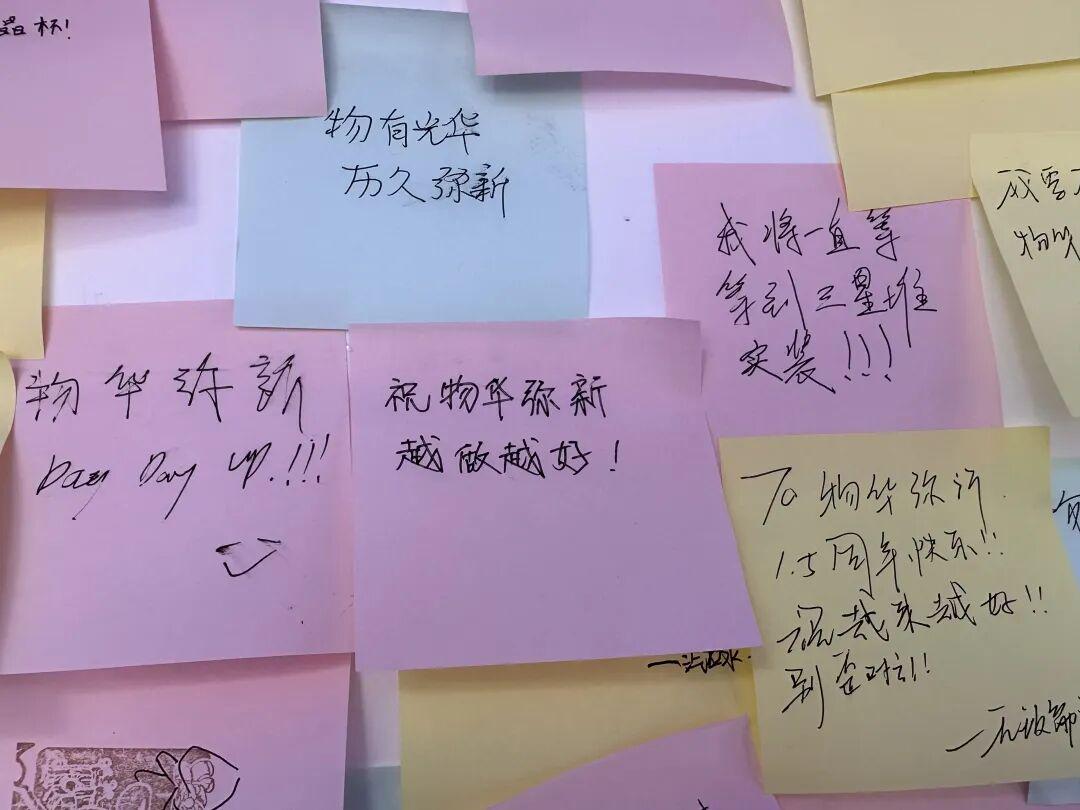 杯!
物有光华
历久弥新
我将一直等
等到三星堆
实装!!!
物华弥新
Day Day UP.!!!
祝物华弥新
越做越好!
TO 物华弥新
1.5周年快乐!!
祝越来越好!!